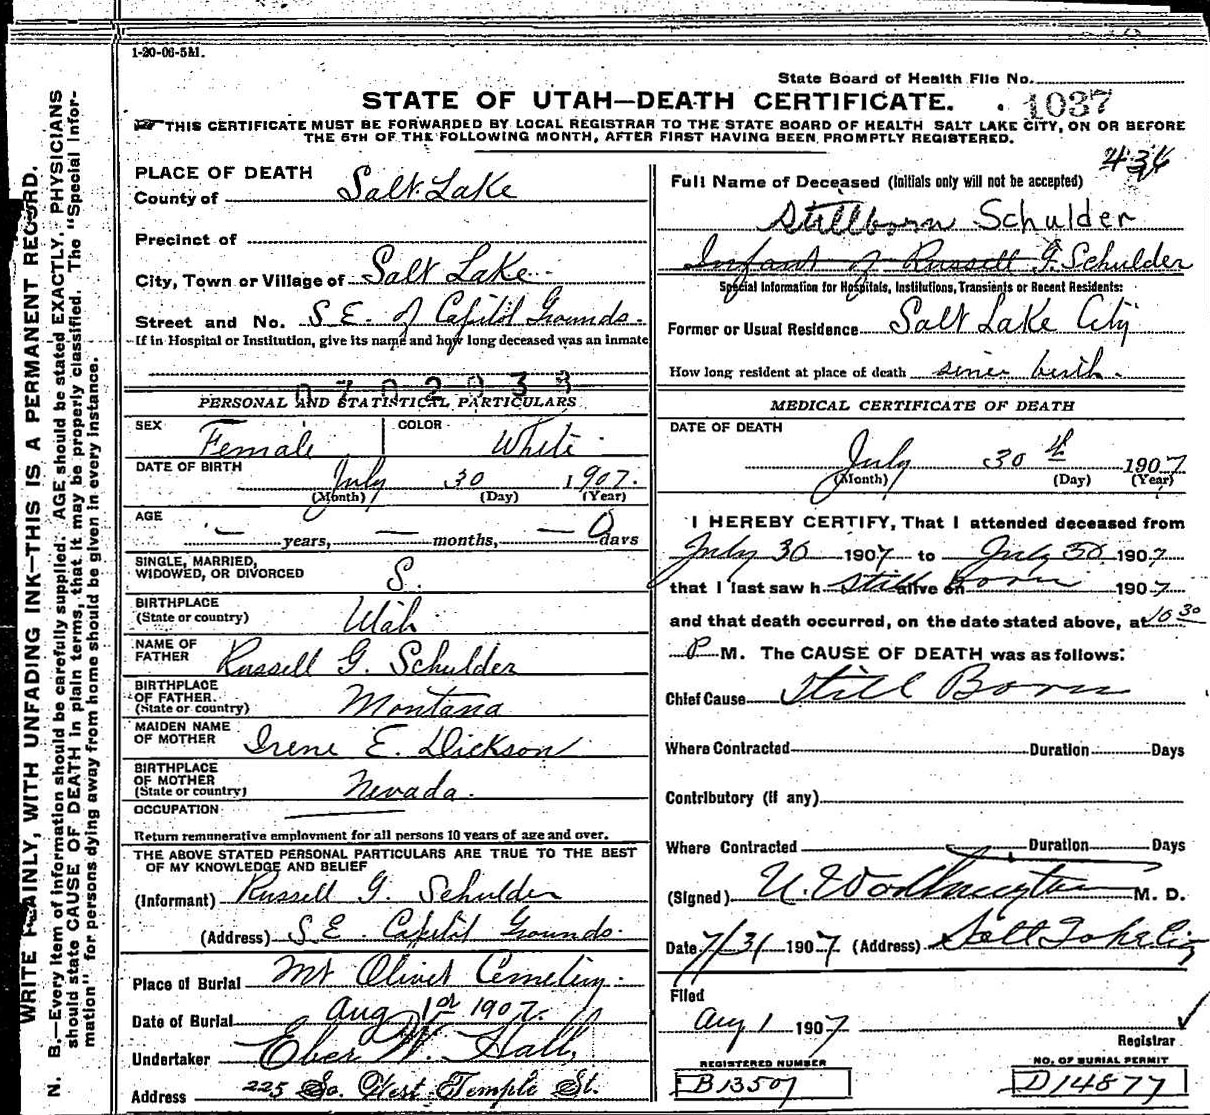 1-20-06-5M.
State Board of Health File No.
STATE OF UTAH—DEATH CERTIFICATE. 1037
THIS CERTIFICATE MUST BE FORWARDED BY LOCAL REGISTRAR TO THE STATE BOARD OF HEALTH SALT LAKE CITY, ON OR BEFORE
THE 5TH OF THE FOLLOWING MONTH, AFTER FIRST HAVING BEEN PROMPTLY REGISTERED.
WRITE PLAINLY, WITH UNFADING INK—THIS IS A PERMANENT RECORD.
N. B.—Every item of information should be carefully supplied. AGE should be stated EXACTLY. PHYSICIANS
should state CAUSE OF DEATH in plain terms, that it may be properly classified. The "Special Infor-
mation" for persons dying away from home should be given in every instance.
PLACE OF DEATH
County of Salt Lake
Precinct of
City, Town or Village of Salt Lake
Street and No. S.E. of Capitol Grounds.
If in Hospital or Institution, give its name and how long deceased was an inmate
PERSONAL AND STATISTICAL PARTICULARS
SEX Female COLOR White
DATE OF BIRTH
July 30 1907.
(Month) (Day) (Year)
AGE
— years, — months, — 0 days
SINGLE, MARRIED,
WIDOWED, OR DIVORCED S.
BIRTHPLACE
(State or country) Utah
NAME OF
FATHER Russell G. Schulder
BIRTHPLACE
OF FATHER
(State or country) Montana
MAIDEN NAME
OF MOTHER Irene E. Dickson
BIRTHPLACE
OF MOTHER
(State or country) Nevada.
OCCUPATION
Return remunerative employment for all persons 10 years of age and over.
THE ABOVE STATED PERSONAL PARTICULARS ARE TRUE TO THE BEST
OF MY KNOWLEDGE AND BELIEF
(Informant) Russell G. Schulder
(Address) S.E. Capitol Grounds.
Place of Burial Mt Olivet Cemetery.
Date of Burial Aug 1st 1907.
Undertaker Eber W. Hall,
Address 225 So. West Temple St.
436
Full Name of Deceased (Initials only will not be accepted)
Stillborn Schulder
Infant of Russell G. Schulder
Special Information for Hospitals, Institutions, Transients or Recent Residents:
Former or Usual Residence Salt Lake City
How long resident at place of death since birth.
MEDICAL CERTIFICATE OF DEATH
DATE OF DEATH
July 30th 1907
(Month) (Day) (Year)
I HEREBY CERTIFY, That I attended deceased from
July 30 1907 to July 30 1907
that I last saw h Still alive on Born 1907
and that death occurred, on the date stated above, at 10 30
P M. The CAUSE OF DEATH was as follows:
Chief Cause Still Born
Where Contracted Duration Days
Contributory (if any)
Where Contracted Duration Days
(Signed) M. D.
Date 7/31 1907 (Address)
Filed
Aug 1 1907
Registrar
REGISTERED NUMBER
B13507
NO. OF BURIAL PERMIT
D14877